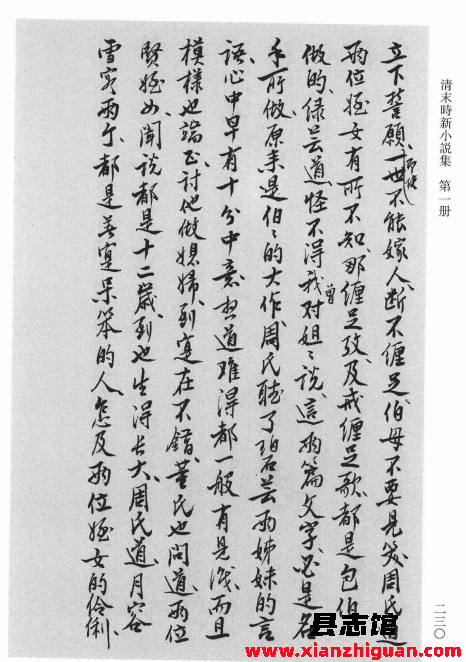 清末時新小說集 第一册
立下誓願、即使一世不能嫁人、斷不纏足、伯母不要見笑、周氏道
兩位姪女有所不知、那纏足攷、及戒纏足歌、都是包伯
做的、綠芸道、怪不得我曾對姐々說、這兩篇文字、必是名
手所做、原来是伯々的大作、周氏聽了珀芸兩姊妹的言
語、心中早有十分中意、想道難得都一般有見識、而且
模樣也端正、討他做媳婦、到寔在不錯、董氏也問道、兩位
賢姪女聞說都是十二歲、到也生得長大、周氏道、月容
雪容兩个、都是善寔呆笨的人、怎及兩位姪女的伶俐、
二三〇
县志馆
www.xianzhiguan.com